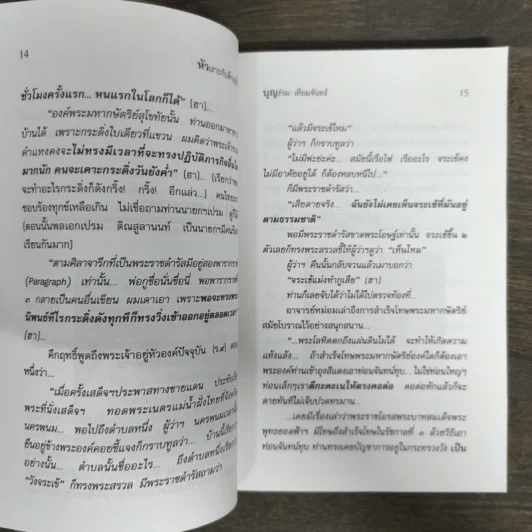 14
หัวเราะกับศึกฤทธิ์
ชั่วโมงครั้งแรก... หนแรกในโลกก็ได้” (ฮา)...
“องค์พระมหากษัตริย์สุโขทัยนั้น ท่านออกมาหา
บ้านได้ เพราะกระดิ่งใบเดียวที่แขวน ผมคิดว่าพระเจ้าราม
คำแหงคงจะไม่ทรงมีเวลาที่จะทรงปฏิบัติภารกิจอื่น
มากนัก คนจะเคาะกระดิ่งวันยังค่ำ” (ฮา) (เรียกว่าพอ
จะทำอะไรกระดิ่งก็ดังกริ๊ง! กริ๊ง! อีกแล้ว...) คนไทย
ชอบร้องทุกข์เหลือเกิน ไม่เชื่อถามท่านนายกฯเปรม ดู
(ตอนนั้นพลเอกเปรม ติณสูลานนท์ เป็นนายกฯมีคนร้อง
เรียนกันมาก)
“ตามศิลาจารึกที่เป็นพระราชดำรัสมีอยู่สองพาราก
(Paragraph) เท่านั้น... พ่อกูชื่อนั่นชื่อนี่ พอพารากราฟ
๓ กลายเป็นคนอื่นเขียน ผมเดาเอา เพราะพอจะทรงพระ
นิพนธ์ทีไรกระดิ่งดังทุกทีก็ทรงวิ่งเข้าออกอยู่ตลอดเวลา”
(ฮา)...
คึกฤทธิ์พูดถึงพระเจ้าอยู่หัวองค์ปัจจุบัน (ร.๙) ตอน
หนึ่งว่า...
“เมื่อครั้งเสด็จฯประพาสทางชายแดน ประทับ
พระที่นั่งเสด็จฯ ทอดพระเนตรแม่น้ำฝั่งไทยที่จังหวัด
นครพนม... พอไปถึงตำบลหนึ่ง ผู้ว่าฯ นครพนม
ยืนอยู่ข้างพระองค์คอยชี้แจงก็กราบทูลว่า... บ้านนี้เรียก
อย่างนั้น... ตำบลนั้นชื่ออะไร... ถึงตำบลหนึ่งเรียก
“วังจระเข้” ก็ทรงพระสรวล มีพระราชดำรัสถามว่า
บุญร่วม เทียมจันทร์
15
“แล้วมีจระเข้ไหม”
ผู้ว่าฯ ก็กราบทูลว่า
“ไม่มีพ่ะย่ะค่ะ... สมัยนี้เรือไฟ เรืออะไร จระเข้คง
ไม่มีอาศัยอยู่ได้ ก็ต้องหลบหนีไป...”
ก็มีพระราชดำรัสว่า...
“เสียดายจริง... ฉันยังไม่เคยเห็นจระเข้ที่มันอยู่
ตามธรรมชาติ”
พอมีพระราชดำรัสขาดพระโอษฐ์เท่านั้น จระเข้ขึ้น ๒
ตัวเลยก็ทรงพระสรวลชี้ให้ผู้ว่าฯดูว่า “เห็นไหม”
ผู้ว่าฯ คืนนั้นกลับจวนแล้วเมาบอกว่า
“จระเข้แม่งทำกูเสีย” (ฮา)
ท่านก็เลยจับได้ว่าไม่ได้ไปตรวจท้องที่...
อาจารย์หม่อมเล่าถึงการสำเร็จโทษพระมหากษัตริย์
สมัยโบราณไว้อย่างสนุกสนาน...
“...พระโลหิตตกถึงแผ่นดินไม่ได้ จะทำให้เกิดความ
แห้งแล้ง... ถ้าสำเร็จโทษพระมหากษัตริย์องค์ใดก็ต้องเอา
พระองค์ท่านเข้าถุงสีแดงเอาท่อนจันทน์ทุบ... ไม่ใช่ท่อนใหญ่ๆ
ท่อนเล็กๆเราตีกะคะเนให้ตรงคอต่อ คอต่อหักแล้วก็จะ
ตายทันทีไม่เจ็บปวดทรมาน...
...เคยมีเรื่องเล่าว่าพระราชโอรสพระบาทสมเด็จพระ
พุทธยอดฟ้าฯ มีโทษถึงสำเร็จโทษในรัชกาลที่ ๓ ด้วยวิธีเอา
ท่อนจันทน์ทุบ ท่านทรงเคยบัญชาการอยู่ในกระทรวงวัง เป็น